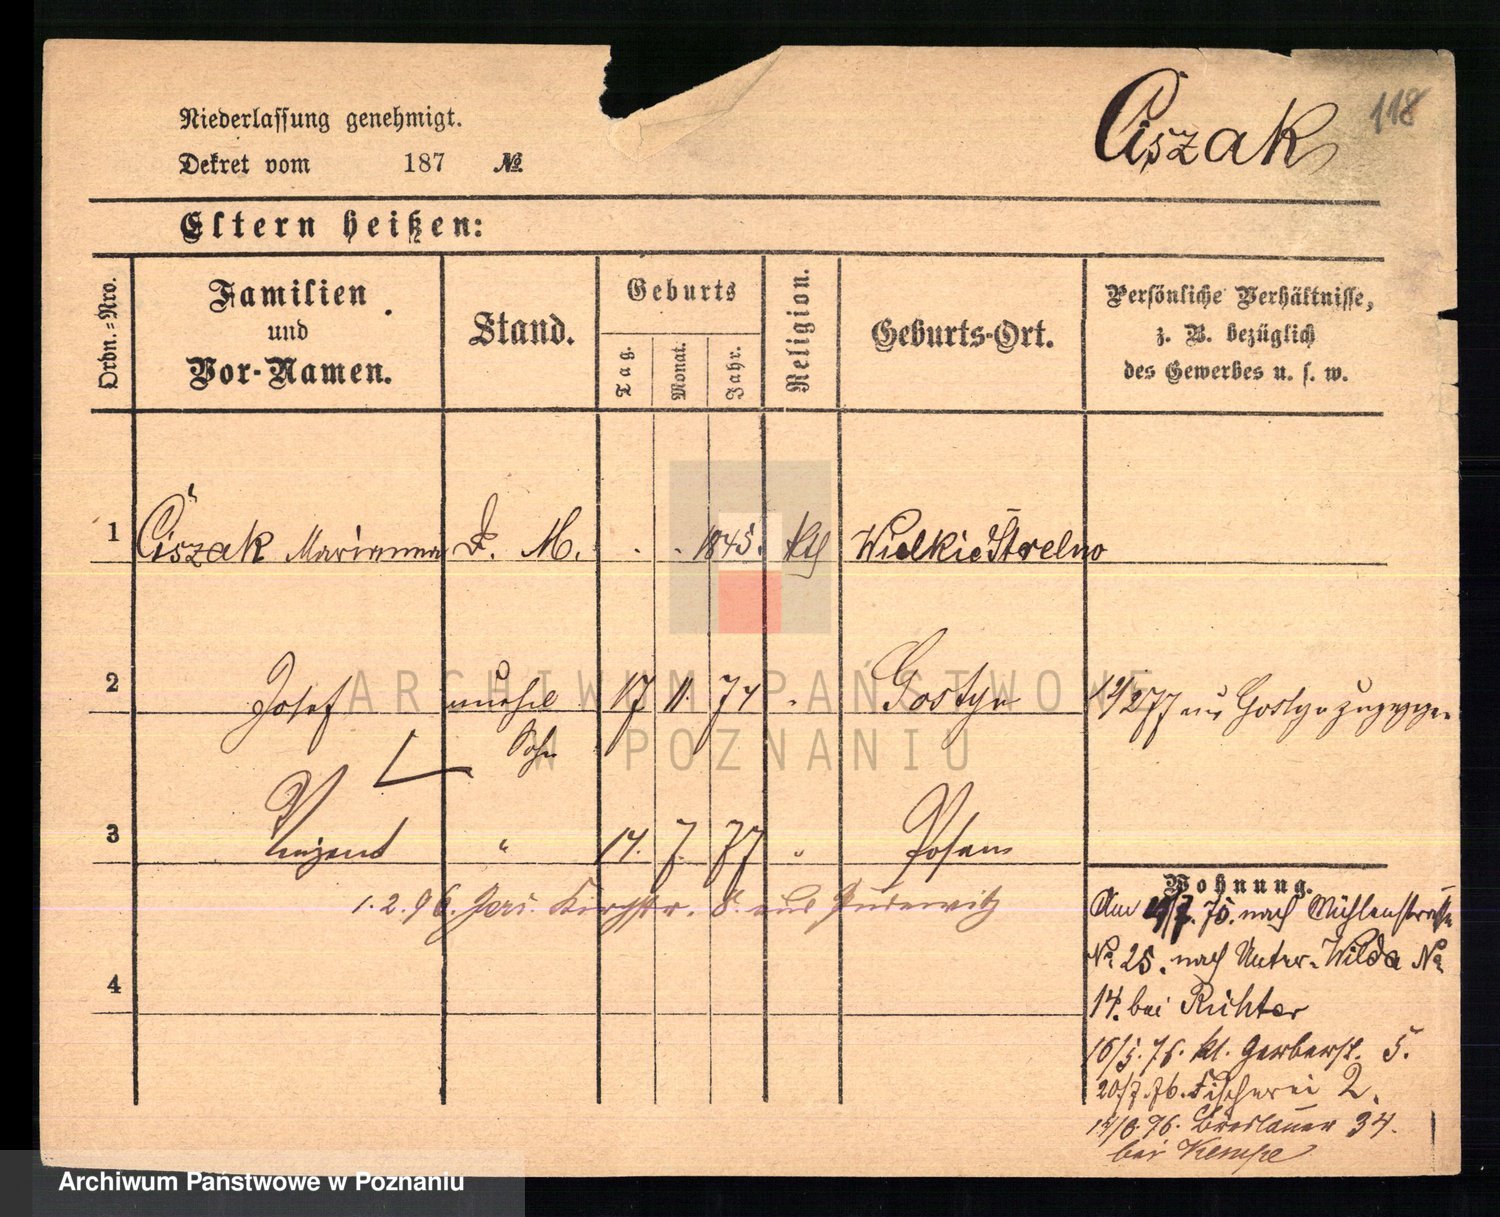 Ciszak 118
Niederlassung genehmigt.
Dekret vom 187 №
Eltern heißen:
Ordn.=Nro.
Familien
und
Vor-Namen.
Stand.
Geburts
Tag.
Monat.
Jahr.
Religion.
Geburts-Ort.
Persönliche Verhältnisse,
z. B. bezüglich
des Gewerbes u. s. w.
1 Ciszak Marianna D. M. . . 1845. kth Wielkie Strelno
2 Josef unehel 17 11. 74 Gostyn 12/2 77 aus Gostyn zugezogen
Sohn
3 Vinzent " 14. 7. 77 " Posen
1. 2. 96. Kirchstr. 8. aus Pudewitz
4
Wohnung.
Am 75. nach Mühlenstraße
№ 25. nach Unter-Wilda №
14. bei Richter
16/5. 76. kl. Gerberst. 5.
20/7. 76. Fischerei 2.
96. Breslauer 34.
bei Kempe
ARCHIWUM PAŃSTWOWE
W POZNANIU
Archiwum Państwowe w Poznaniu